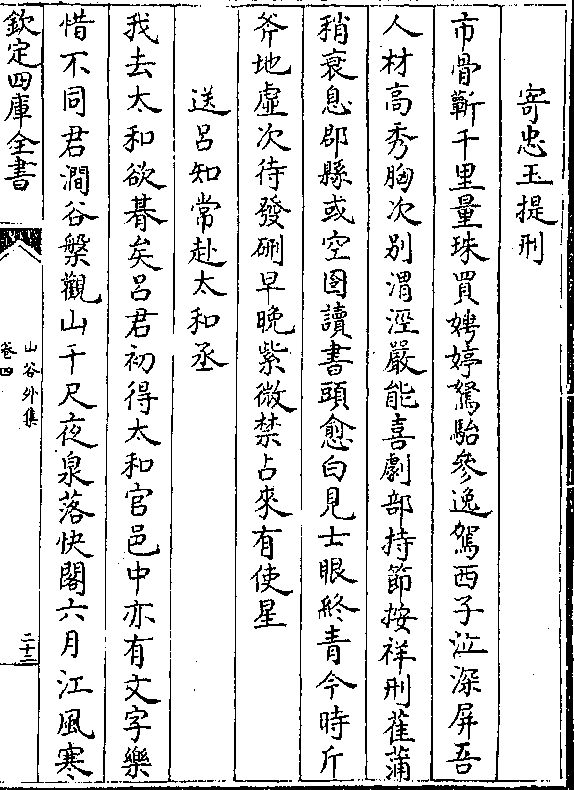 寄忠玉提刑
市骨蘄千里量珠買娉婷駑駘參逸駕西子泣深屏吾
人材高秀胸次别渭涇嚴能喜劇部持節按祥刑萑蒲
稍衰息郡縣或空囹讀書頭愈白見士眼終青今時斤
斧地虛次待發硎早晚紫微禁占來有使星
送呂知常赴太和丞
我去太和欲朞矣呂君初得太和官邑中亦有文字樂
惜不同君澗谷槃觀山千尺夜泉落快閣六月江風寒
欽定四庫全書
山谷外集
卷四
二十二